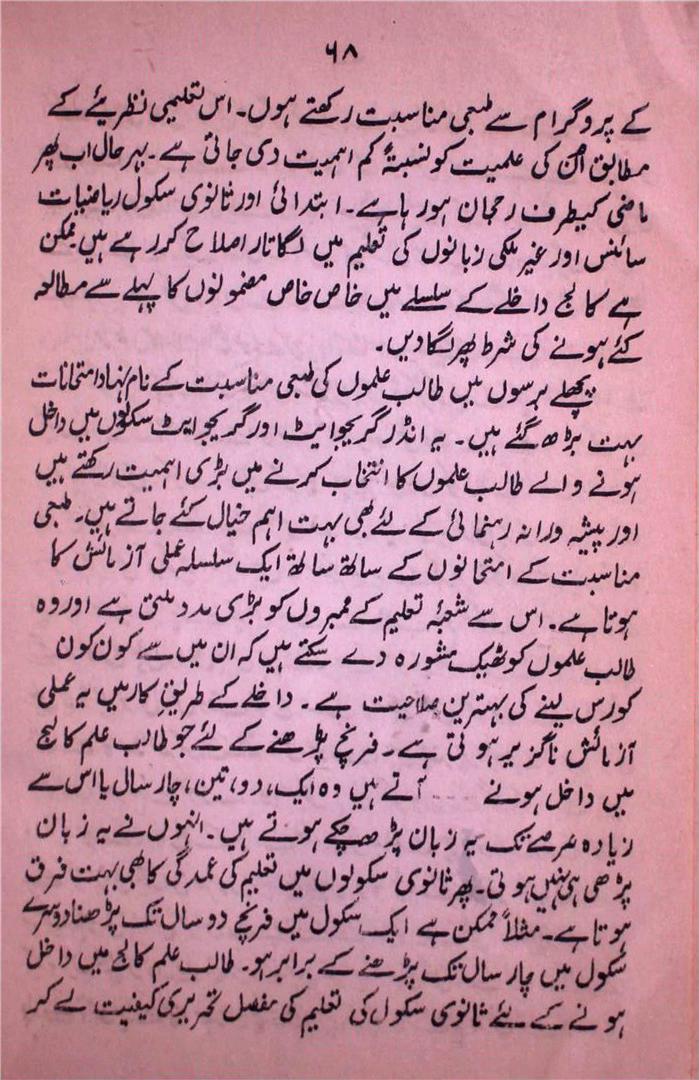 ۶۸
کے پروگرام سے طبعی مناسبت رکھتے ہوں۔ اس تعلیمی نظریئے کے
مطابق اُن کی علمیت کو نسبتۂ کم اہمیت دی جاتی ہے۔ بہرحال اب پھر
ماضی کیطرف رحجان ہورہا ہے۔ ابتدائی اور ثانوی سکول ریاضیات
سائنس اور غیر ملکی زبانوں کی تعلیم میں لگاتار اصلاح کررہے ہیں ممکن
ہے کالج داخلے کے سلسلے میں خاص خاص مضمولوں کا پہلے سے مطالعہ
کئے ہونے کی شرط پھر لگادیں۔
پچھلے برسوں میں طالب علموں کی طبعی مناسبت کے نام نہاد امتحانات
بہت بڑھ گئے ہیں۔ یہ انڈر گریجوایٹ اور گریجوایٹ سکولوں میں داخل
ہونے والے طالب علموں کا انتخاب کرنے میں بڑی اہمیت رکھتے ہیں
اور پیشہ ورانہ رہنمائی کے لئے بھی بہت اہم خیال کئے جاتے ہیں۔ طبعی
مناسبت کے امتحانوں کے ساتھ ساتھ ایک سلسلہ عملی آزمائش کا
ہوتا ہے۔ اس سے شعبۂ تعلیم کے ممبروں کو بڑی مدد ملتی ہے اور وہ
طالب علموں کو ٹھیک مشورہ دے سکتے ہیں کہ ان میں سے کون کون
کورس لینے کی بہترین صلاحیت ہے۔ داخلے کے طریقِ کار میں یہ عملی
آزمائش ناگزیر ہوتی ہے۔ فرنچ پڑھنے کے لئے جو طالب علم کالج
میں داخل ہونے .... آتے ہیں وہ ایک، دو، تین، چار سال یا اس سے
زیادہ عرصے تک یہ زبان پڑھ چکے ہوتے ہیں۔ انہوں نے یہ زبان
پڑھی ہی نہیں ہوتی۔ پھر ثانوی سکولوں میں تعلیم کی عمدگی کا بھی بہت فرق
ہوتا ہے۔ مثلاً ممکن ہے ایک سکول میں فرنچ دو سال تک پڑھنا دوسرے
سکول میں چار سال تک پڑھنے کے برابر ہو۔ طالب علم کالج میں داخل
ہونے کے لئے ثانوی سکول کی تعلیم کی مفصل تحریری کیفیت لے کر